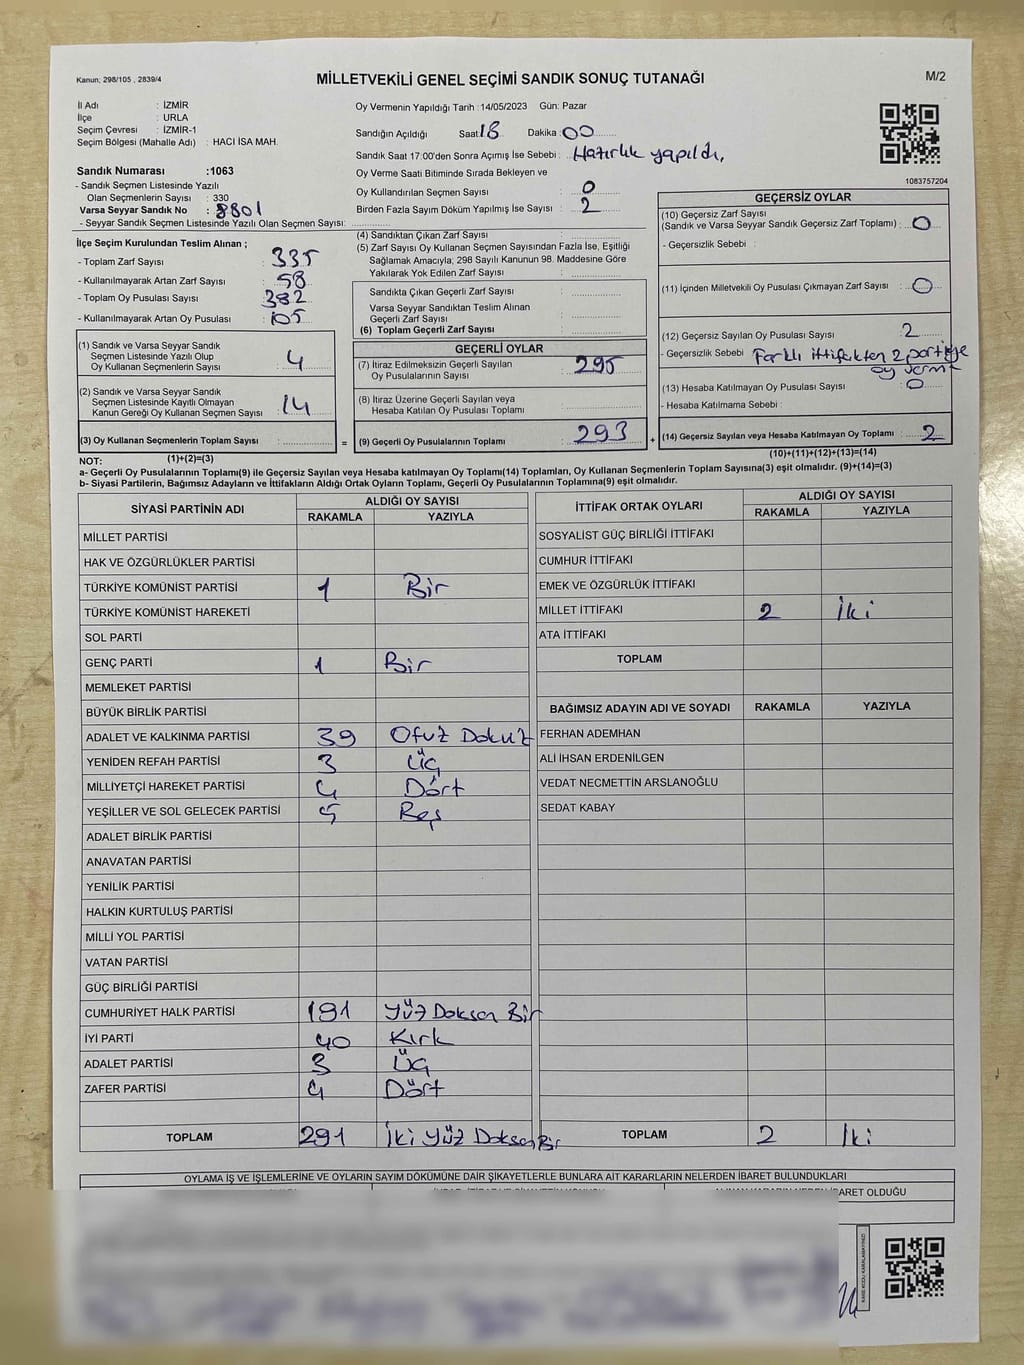 Kanun; 298/105 , 2839/4
MİLLETVEKİLİ GENEL SEÇİMİ SANDIK SONUÇ TUTANAĞI
M/2
İl Adı : İZMİR
İlçe : URLA
Seçim Çevresi : İZMİR-1
Seçim Bölgesi (Mahalle Adı) : HACI İSA MAH.
Sandık Numarası :1063
- Sandık Seçmen Listesinde Yazılı
Olan Seçmenlerin Sayısı : 330
Varsa Seyyar Sandık No : 8801
- Seyyar Sandık Seçmen Listesinde Yazılı Olan Seçmen Sayısı:
Oy Vermenin Yapıldığı Tarih :14/05/2023 Gün: Pazar
Sandığın Açıldığı Saat 18 Dakika 00
Sandık Saat 17:00'den Sonra Açımış İse Sebebi : Hazırlık yapıldı,
Oy Verme Saati Bitiminde Sırada Bekleyen ve
Oy Kullandırılan Seçmen Sayısı : 0
Birden Fazla Sayım Döküm Yapılmış İse Sayısı : 2
1083757204
İlçe Seçim Kurulundan Teslim Alınan ;
- Toplam Zarf Sayısı : 335
- Kullanılmayarak Artan Zarf Sayısı : 58
- Toplam Oy Pusulası Sayısı : 382
- Kullanılmayarak Artan Oy Pusulası : 105
(1) Sandık ve Varsa Seyyar Sandık
Seçmen Listesinde Yazılı Olup
Oy Kullanan Seçmenlerin Sayısı : 4
(2) Sandık ve Varsa Seyyar Sandık
Seçmen Listesinde Kayıtlı Olmayan
Kanun Gereği Oy Kullanan Seçmen Sayısı : 14
(3) Oy Kullanan Seçmenlerin Toplam Sayısı :
(1)+(2)=(3)
(4) Sandıktan Çıkan Zarf Sayısı :
(5) Zarf Sayısı Oy Kullanan Seçmen Sayısından Fazla İse, Eşitliği
Sağlamak Amacıyla; 298 Sayılı Kanunun 98. Maddesine Göre
Yakılarak Yok Edilen Zarf Sayısı :
Sandıkta Çıkan Geçerli Zarf Sayısı :
Varsa Seyyar Sandıktan Teslim Alınan
Geçerli Zarf Sayısı :
(6) Toplam Geçerli Zarf Sayısı :
GEÇERLİ OYLAR
(7) İtiraz Edilmeksizin Geçerli Sayılan
Oy Pusulalarının Sayısı : 295
(8) İtiraz Üzerine Geçerli Sayılan veya
Hesaba Katılan Oy Pusulası Toplamı :
= (9) Geçerli Oy Pusulalarının Toplamı : 293 +
GEÇERSİZ OYLAR
(10) Geçersiz Zarf Sayısı
(Sandık ve Varsa Seyyar Sandık Geçersiz Zarf Toplamı) : 0
- Geçersizlik Sebebi :
(11) İçinden Milletvekili Oy Pusulası Çıkmayan Zarf Sayısı : 0
(12) Geçersiz Sayılan Oy Pusulası Sayısı : 2
- Geçersizlik Sebebi Farklı ittifakten 2 partiye
oy vermt
(13) Hesaba Katılmayan Oy Pusulası Sayısı : 0
- Hesaba Katılmama Sebebi :
(14) Geçersiz Sayılan veya Hesaba Katılmayan Oy Toplamı : 2
(10)+(11)+(12)+(13)=(14)
NOT:
a- Geçerli Oy Pusulalarının Toplamı(9) ile Geçersiz Sayılan veya Hesaba katılmayan Oy Toplamı(14) Toplamları, Oy Kullanan Seçmenlerin Toplam Sayısına(3) eşit olmalıdır. (9)+(14)=(3)
b- Siyasi Partilerin, Bağımsız Adayların ve İttifakların Aldığı Ortak Oyların Toplamı, Geçerli Oy Pusulalarının Toplamına(9) eşit olmalıdır.
SİYASİ PARTİNİN ADI ALDIĞI OY SAYISI
RAKAMLA YAZIYLA
MİLLET PARTİSİ
HAK VE ÖZGÜRLÜKLER PARTİSİ
TÜRKİYE KOMÜNİST PARTİSİ 1 Bir
TÜRKİYE KOMÜNİST HAREKETİ
SOL PARTİ
GENÇ PARTİ 1 Bir
MEMLEKET PARTİSİ
BÜYÜK BİRLİK PARTİSİ
ADALET VE KALKINMA PARTİSİ 39 Otuz Dokuz
YENİDEN REFAH PARTİSİ 3 Üç
MİLLİYETÇİ HAREKET PARTİSİ 4 Dört
YEŞİLLER VE SOL GELECEK PARTİSİ 5 Beş
ADALET BİRLİK PARTİSİ
ANAVATAN PARTİSİ
YENİLİK PARTİSİ
HALKIN KURTULUŞ PARTİSİ
MİLLİ YOL PARTİSİ
VATAN PARTİSİ
GÜÇ BİRLİĞİ PARTİSİ
CUMHURİYET HALK PARTİSİ 191 Yüz Doksan Bir
İYİ PARTİ 40 Kırk
ADALET PARTİSİ 3 Üç
ZAFER PARTİSİ 4 Dört
TOPLAM 291 İki Yüz Doksan Bir
İTTİFAK ORTAK OYLARI ALDIĞI OY SAYISI
RAKAMLA YAZIYLA
SOSYALİST GÜÇ BİRLİĞİ İTTİFAKI
CUMHUR İTTİFAKI
EMEK VE ÖZGÜRLÜK İTTİFAKI
MİLLET İTTİFAKI 2 İki
ATA İTTİFAKI
TOPLAM
BAĞIMSIZ ADAYIN ADI VE SOYADI RAKAMLA YAZIYLA
FERHAN ADEMHAN
ALİ İHSAN ERDENİLGEN
VEDAT NECMETTİN ARSLANOĞLU
SEDAT KABAY
TOPLAM 2 İki
OYLAMA İŞ VE İŞLEMLERİNE VE OYLARIN SAYIM DÖKÜMÜNE DAİR ŞİKAYETLERLE BUNLARA AİT KARARLARIN NELERDEN İBARET BULUNDUKLARI
İBARET OLDUĞU
KARE KODU KARALAMAYINIZ!